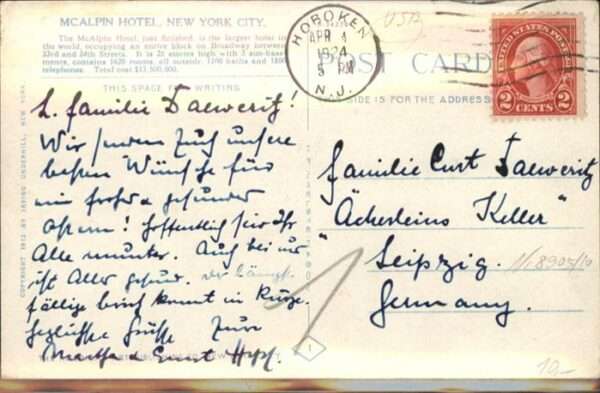 MCALPIN HOTEL, NEW YORK CITY.
The McAlpin Hotel, just finished, is the largest hotel in
the world, occupying an entire block on Broadway between
33rd and 34th Streets. It is 25 stories high with 3 sub-base-
ments, contains 1620 rooms, all outside, 1100 baths and 1800
telephones. Total cost $13,500,000.
THIS SPACE FOR WRITING
L. Familie Daeweritz!
Wir senden Euch unsere
besten Wünsche für
ein frohes & gesundes
Ostern! Hoffentlich seid Ihr
Alle munter. Auch bei uns
ist Alles gesund. Der längst
fällige brief kommt in Kürze.
Herzlichste Grüsse Eure
Martha & Ernst
COPYRIGHT 1912 BY IRVING UNDERHILL, NEW YORK.
HOBOKEN
APR 4
1924
5 PM
N.J.
USA
POST CARD
SIDE IS FOR THE ADDRESS
UNITED STATES POSTAGE
2 CENTS 2
Familie Curt Daeweritz
"Äckerleins Keller"
Leipzig.
Germany.
10.-